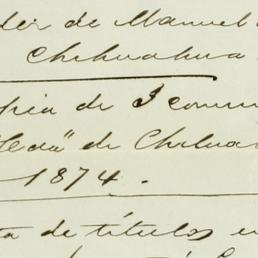 der de Manuel
Chihuahua
pia de 3 comun
Heda" de Chihua
1874.
ta de títulos en